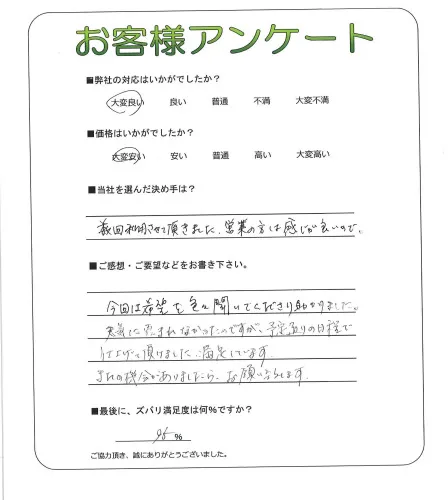 お客様アンケート
■弊社の対応はいかがでしたか?
大変良い 良い 普通 不満 大変不満
■価格はいかがでしたか?
大変安い 安い 普通 高い 大変高い
■当社を選んだ決め手は?
数回利用させて頂きました、営業の方は感じが良いので。
■ご感想・ご要望などをお書き下さい。
今回は希望を色々聞いてくださり助かりました。
天気に恵まれなかったのですが、予定通りの日程で
仕上げて頂けました。満足しています。
またの機会がありましたら、お願いします。
■最後に、ズバリ満足度は何%ですか?
95 %
ご協力頂き、誠にありがとうございました。